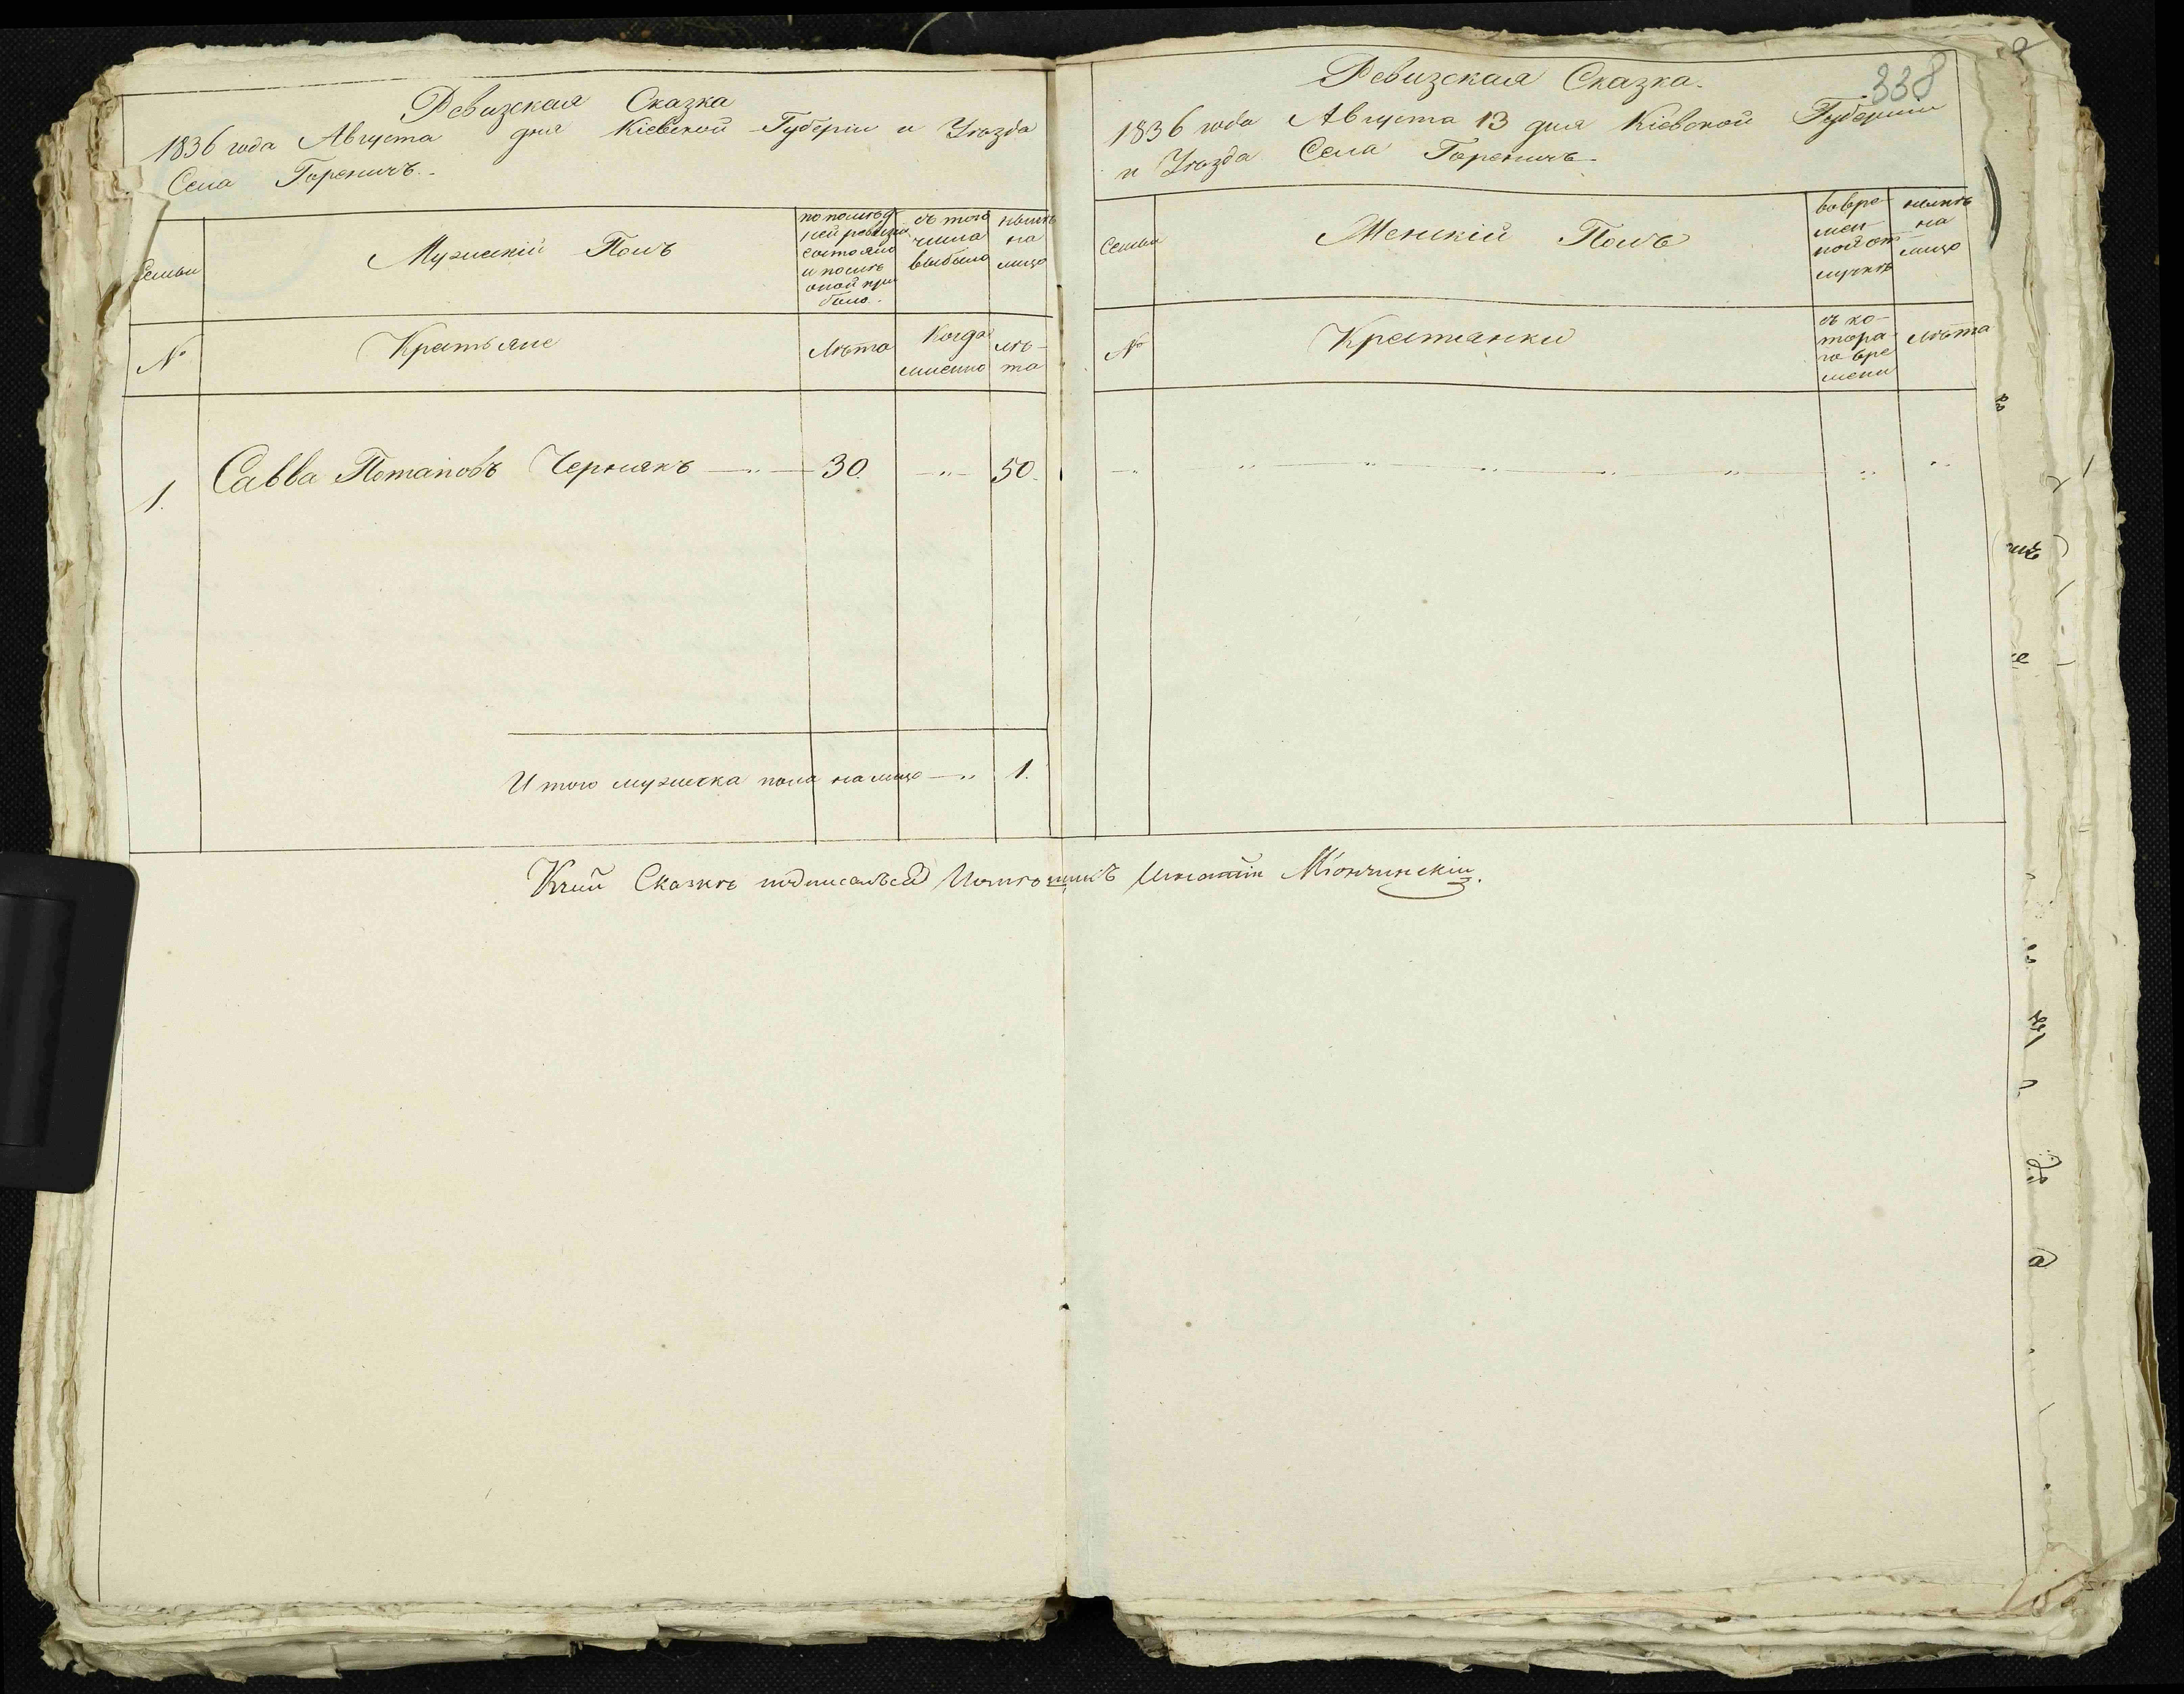 Ревизская Сказка
1836 года Августа дня Кіевской Губерніи и Уѣзда
Села Гореничъ.
Семьи
Мужескій Полъ
по послѣд
ней ревизіи
состояло
и послѣ
оной при
было.
съ того
числа
выбыло
нынѣ
на
лицо
№
Крестьяне
Лѣта
Когда
именно
лѣ-
та
1. Савва Потаповъ Чернякъ 30. 50.
Итого мужеска пола на лицо 1.
338
Ревизская Сказка.
1836 года Августа 13 дня Кіевской Губерніи
и Уѣзда Села Гореничъ
Семьи
Женскій Полъ
во вре-
мен
ной от
лучкѣ
нынѣ
на
лицо
№
Крестянки
съ ко-
тора
го вре
мени
лѣта
К сей Сказкѣ подписался Игнатій